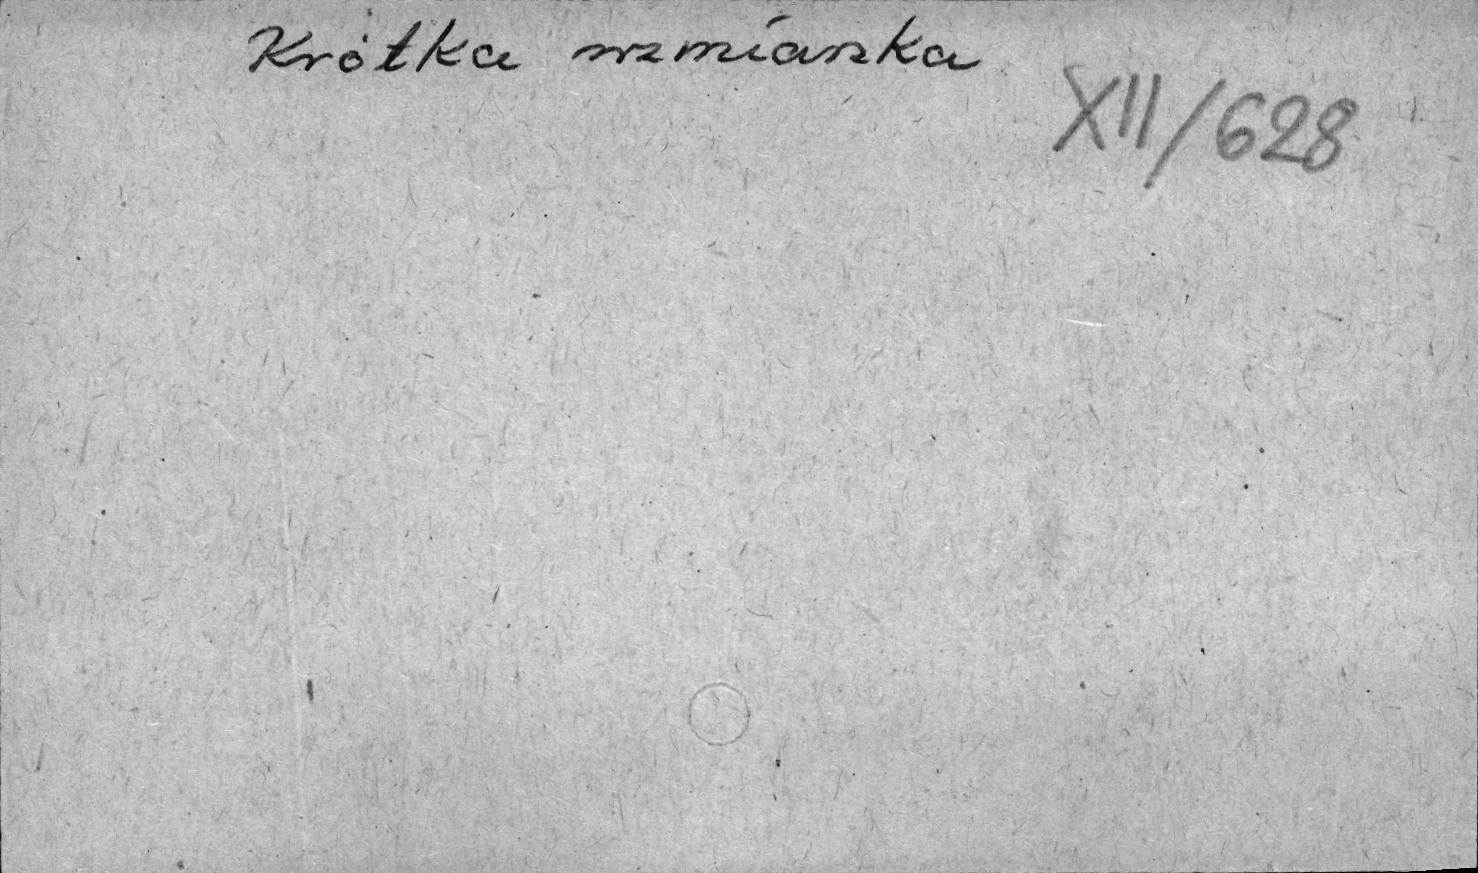 Krótka wzmianka
XII/628